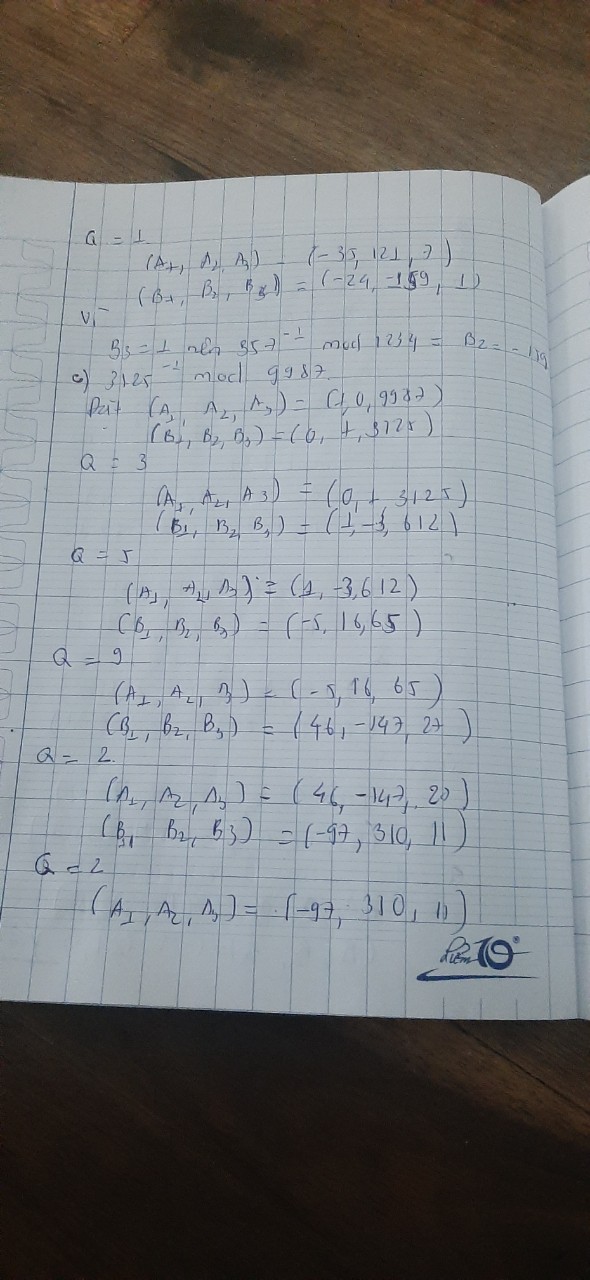 Q = 1
(A1, A2, A3) = (-35, 121, 7)
(B1, B2, B3) = (-24, -159, 1)
Vì
B3 = 1 nên 357^-1 mod 1234 = B2 = -159
c) 3125^-1 mod 9987
Đặt (A1, A2, A3) = (1, 0, 9987)
(B1, B2, B3) = (0, 1, 3125)
Q = 3
(A1, A2, A3) = (0, 1, 3125)
(B1, B2, B3) = (1, -3, 612)
Q = 5
(A1, A2, A3) = (1, -3, 612)
(B1, B2, B3) = (-5, 16, 65)
Q = 9
(A1, A2, A3) = (-5, 16, 65)
(B1, B2, B3) = (46, -147, 27)
Q = 2.
(A1, A2, A3) = (46, -147, 20)
(B1, B2, B3) = (-97, 310, 11)
Q = 2
(A1, A2, A3) = (-97, 310, 11)
Điểm 10